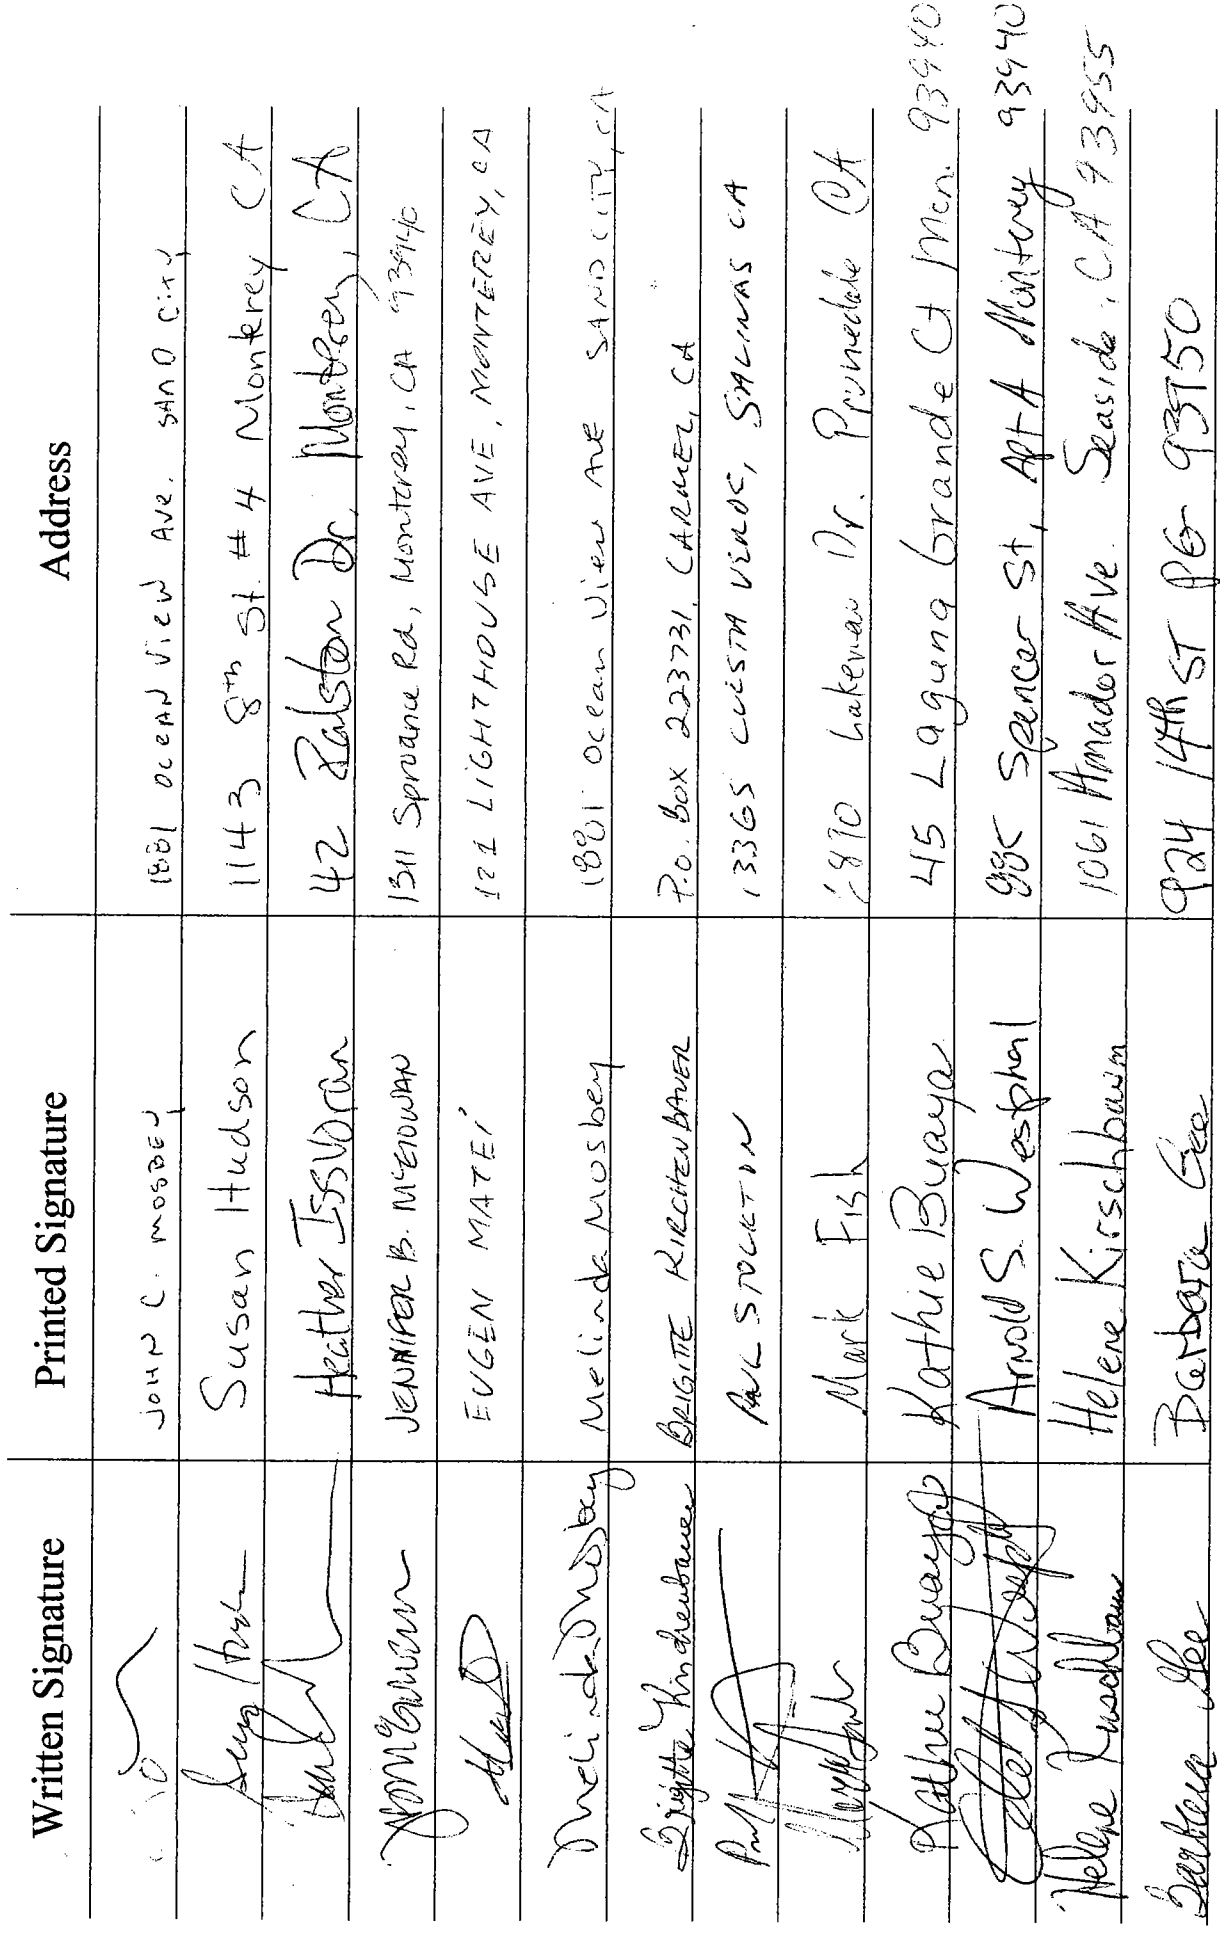 Written Signature Printed Signature Address
JOHN C. MOSBEY 1881 OCEAN VIEW AVE. SAND CITY
Susan Hudson 1143 8th St. # 4 Monterey CA
Heather Issvoran 42 Ralston Dr. Monterey, CA
JENNIFER B. MCGOWAN 1311 Spruance Rd, Monterey, CA 93940
EUGEN MATEI 121 LIGHTHOUSE AVE, MONTEREY, CA
Melinda Mosbey Melinda Mosbey 1881 Ocean View Ave SAND CITY, CA
Brigitte Kirchenbauer BRIGITTE KIRCHENBAUER P.O. Box 223731, CARMEL, CA
PAUL STOCKTON 13365 CUESTA VERDE, SALINAS CA
Mark Fish Mark Fish Lakeview Dr. Prunedale CA
Kathie Buaya Kathie Buaya 45 Laguna Grande Ct Mon. 93940
Arnold S. Westphal 985 Spencer St, Apt A Monterey 93940
Helene Kirschbaum Helene Kirschbaum 1061 Amador Ave. Seaside, CA 93955
Barbara Gee Barbara Gee 924 14th ST PG 93950